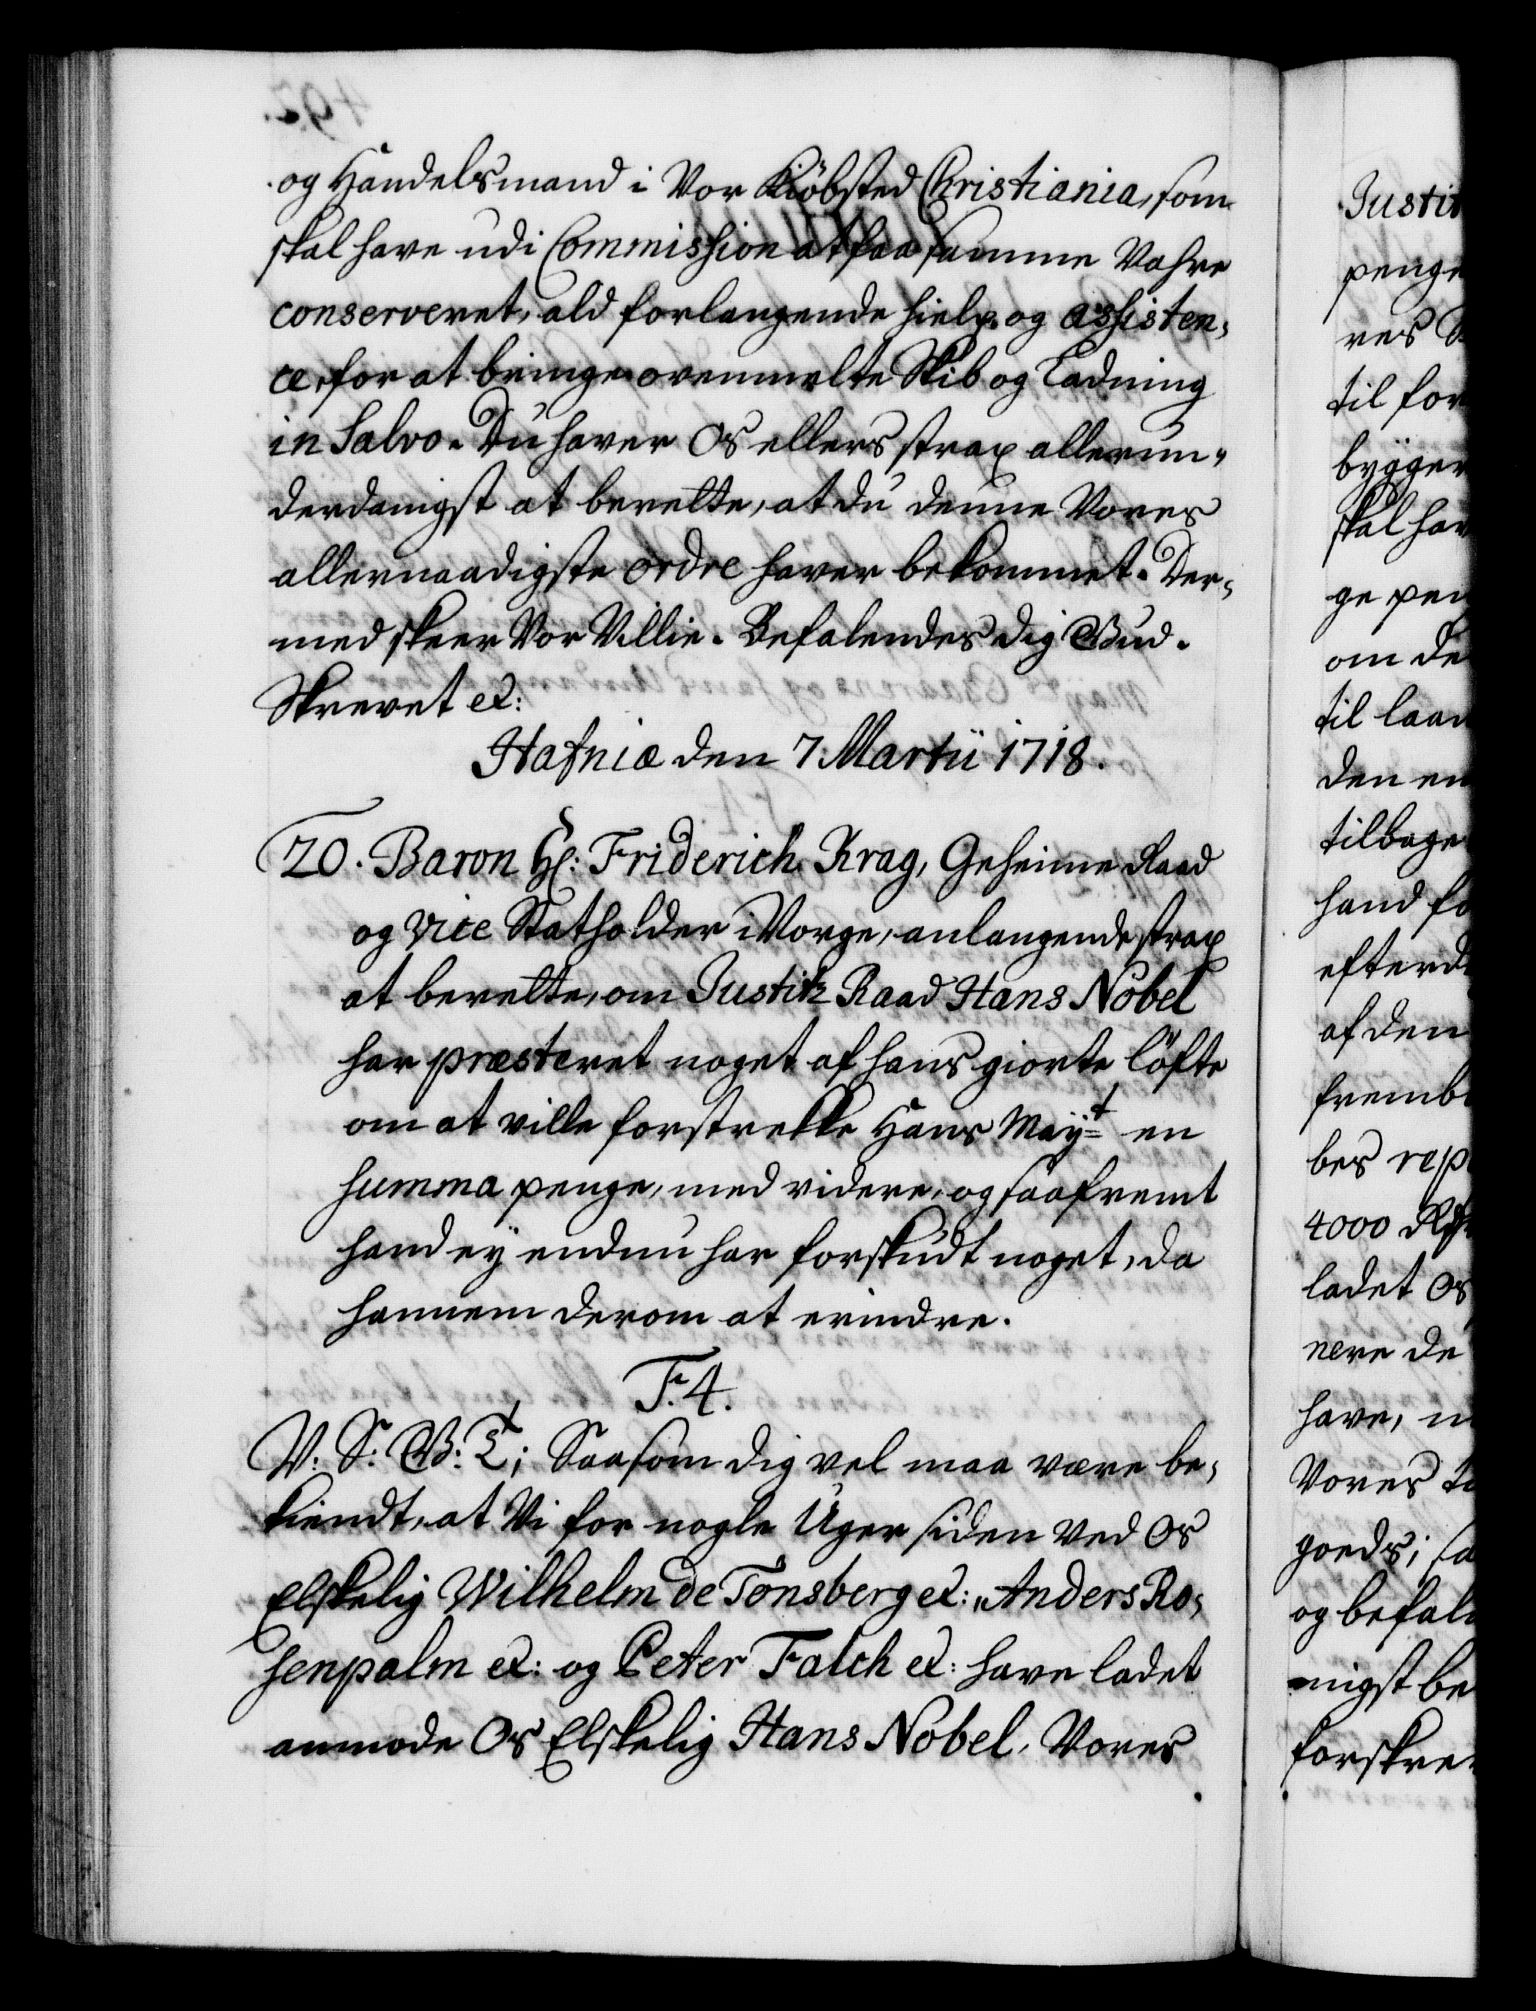 og Handelsmand i Vor Kiöbsted Christiania, som
skal have udi Commission at faa samme Vahre
conserveret, ald forlangende hielp og assisten,
ce, for at bringe ovenmelte Skib og Ladning
in Salvo. Du haver Os ellers strax allerun,
derdanigst at berette, at du denne Vores
allernaadigste ordre haver bekommet. Der,
med skeer Vor Villie. Befalendes dig Gud.
Skrevet ec:
Hafniæ den 7 Martii 1718.
20. Baron Hr: Friderich Krag, Geheime Raad
og Vice Statholder i Norge, anlangende strax
at berette, om Justitz Raad Hans Nobel
har præsteret noget af hans giorte löfte
om at ville forstrekke Hans Mayt en
summa penge, med videre, og saafremt
hand ey endnu har forskudt noget, da
hannem derom at erindre.
F. 4.
V: S: G: T; Saasom dig vel maa være be,
kiendt, at Vi for nogle Uger siden ved Os
Elskelig Wilhelm de Tonsberg ec:, Anders Ro,
senpalm ec: og Peter Falch ec: have ladet
anmode Os Elskelig Hans Nobel, Vores
Justit
penge
res
til for
bygger
skal hav
ge pen
om de
til laan
den en
tilbage
hand fo
efterd
af den
fremb
bes rep
4000 Rd
ladet Os
nere de
have, m
Vores t
goeds; sa
og befal
nigst be
forskre